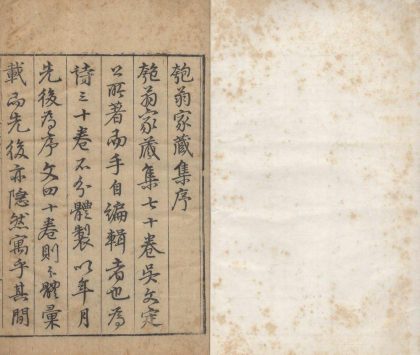 匏翁家藏集序
匏翁家藏集七十卷吳文定
公所著而手自編輯者也為
詩三十卷不分體製以年月
先後為序文四十卷則分體彙
載而先後亦隱然寓乎其間